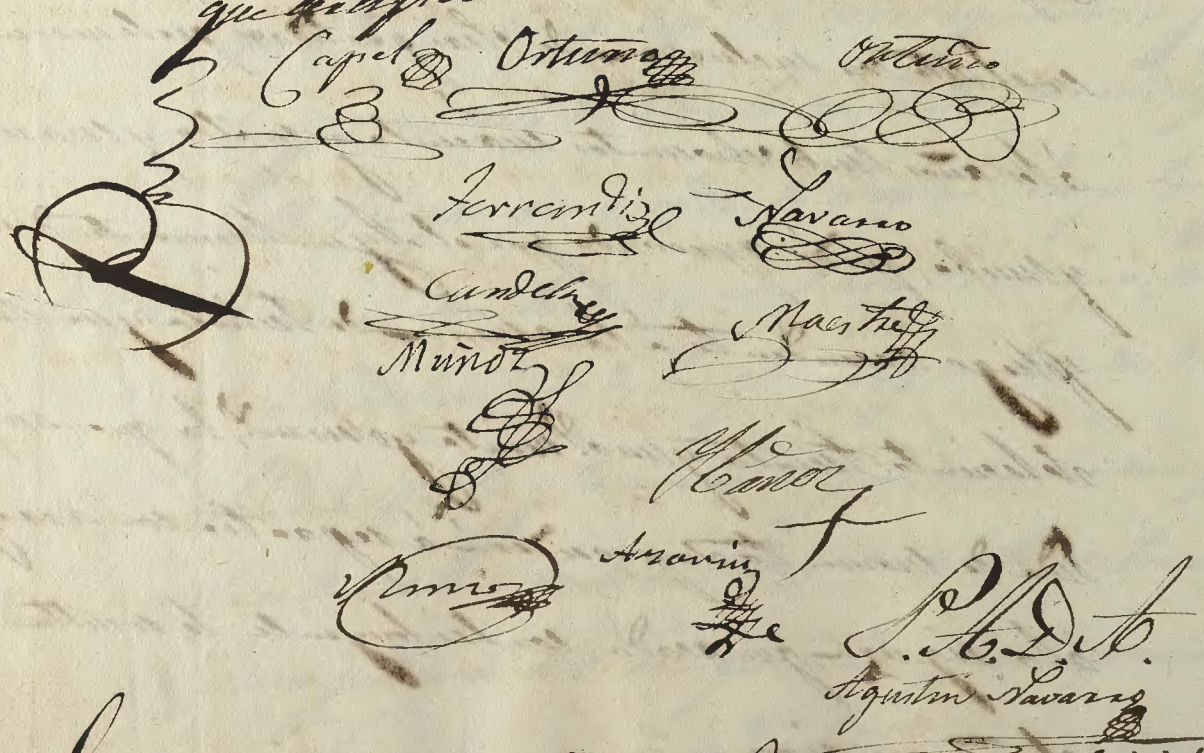 que
Capel Ortuño Ortuño
Ferrandiz Navarro
Candela Maestre
Muñoz
Yañez
Azorin
P. A. D. A.
Agustin Navarro